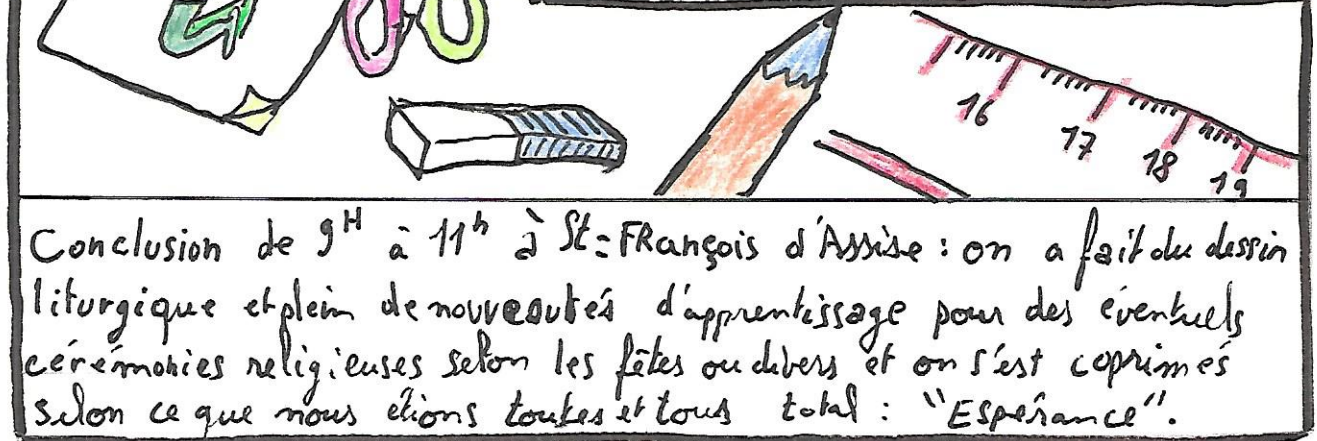 16
17
18
19
Conclusion de 9H à 11h à St-FRançois d'Assise : on a fait du dessin
liturgique et plein de nouveautés d'apprentissage pour des éventuels
cérémonies religieuses selon les fêtes ou divers et on s'est coprimés
selon ce que nous étions toutes et tous total : "Espérance".